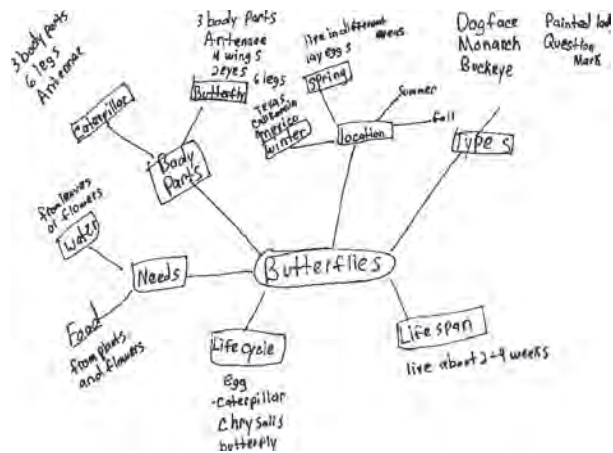 3 body parts
6 legs
Antennae
Caterpillar
3 body parts
Antennae
4 wings
2 eyes
6 legs
Butterfly
Body
Parts
live in different areas
lay eggs
Spring
Summer
Fall
Texas
California
Mexico
Winter
location
Dogface
Monarch
Buckeye
Painted lady
Question
Mark
Types
from leaves
or flowers
Water
Needs
Food
from plants
and flowers
Butterflies
Life cycle
Egg
-Caterpillar
Chrysalis
butterfly
Life span
live about 2-4 weeks